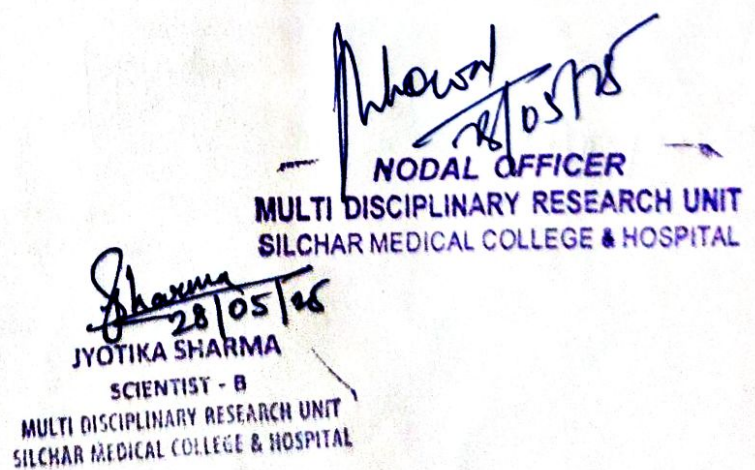 28/05/25
NODAL OFFICER
MULTI DISCIPLINARY RESEARCH UNIT
SILCHAR MEDICAL COLLEGE & HOSPITAL
Sharma
28/05/25
JYOTIKA SHARMA
SCIENTIST - B
MULTI DISCIPLINARY RESEARCH UNIT
SILCHAR MEDICAL COLLEGE & HOSPITAL